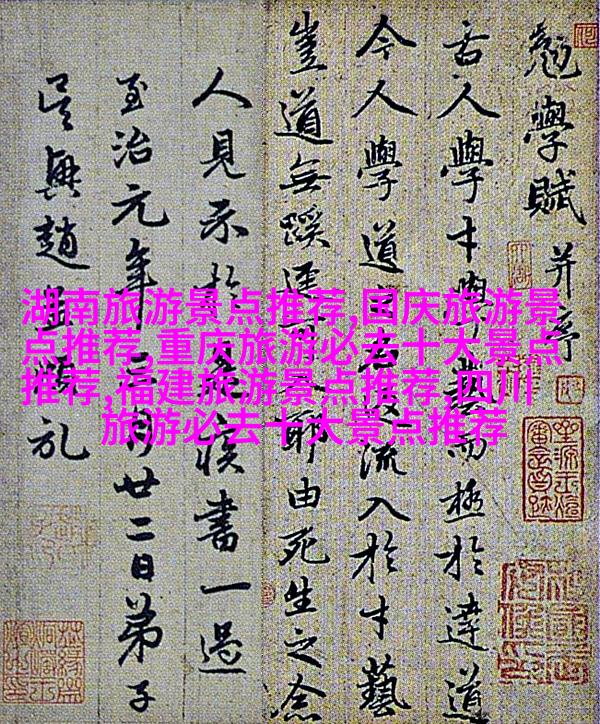 湖南旅游景点推荐,国庆旅游景
点推荐,重庆旅游必去十大景点
推荐,福建旅游景点推荐,四川
旅游必去十大景点推荐
勉學賦 并序
古人學才學而極於達道
今人學道流入於才藝
豈道無蹊逕耶由死生之念
人見示於後書一過
至治元年月廿二日弟子
吳興趙孟頫